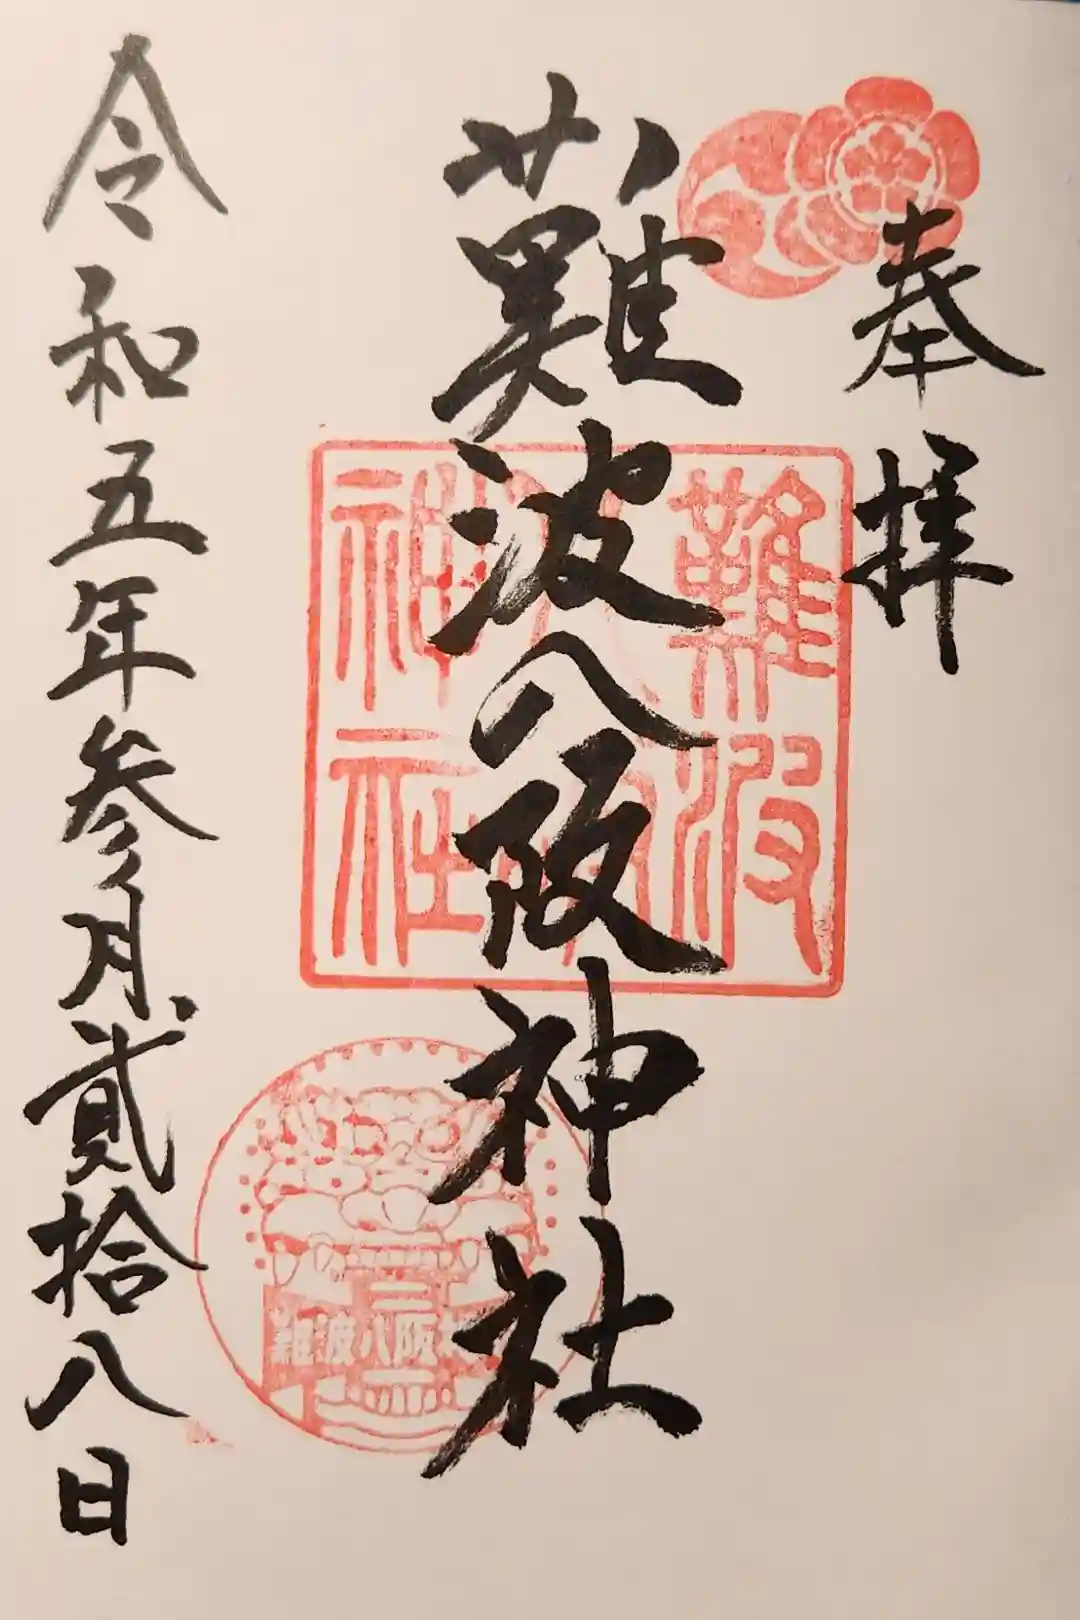 奉拝
難波八阪神社
難波
神社
難波八阪神
令和五年参月貳拾八日